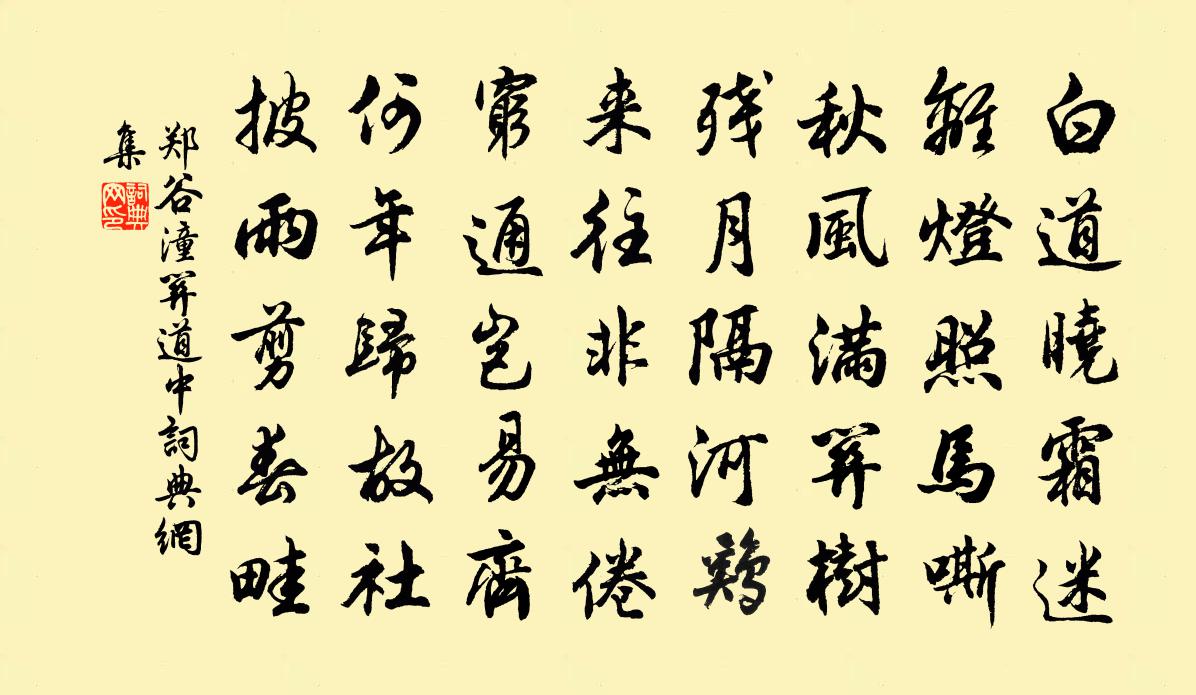 白道曉霜迷
離燈照馬嘶
秋風滿關樹
残月隔河鷄
来往非無倦
窮通豈易齊
何年歸故社
披雨剪春畦
郑谷潼關道中詞典網
集
詞典
网印